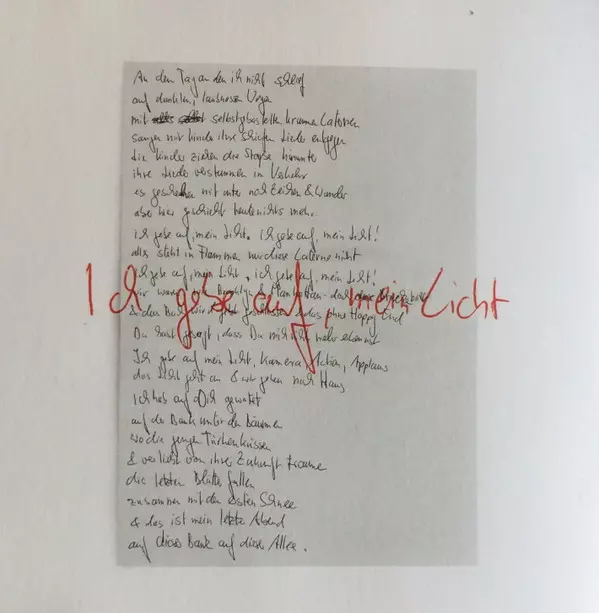 An dem Tag an dem ich nicht schlief
auf dunklen, lautlosen Wegen
mit selbstgebastelten krummen Laternen
sangen mir Kinder ihre schiefen Lieder entgegen
die Kinder ziehen die Straße hinunter
ihre Lieder verstummen im Verkehr
es geschehen mitunter noch Zeichen & Wunder
aber hier geschieht heute nichts mehr.
ich gebe auf, mein Licht. ich gebe auf, mein Licht!
alles steht in Flammen nur diese Laterne nicht
ich gebe auf, mein Licht, ich gebe auf, mein Licht!
Ich gebe auf, mein Licht
wir waren & Manhattan doch ohne
& das Buch wird geschlossen, & das ohne Happy End
Du hast gesagt, dass Du mich nicht mehr erkennst
Ich gebe auf mein Licht, Kamera, Action, Applaus
das Licht geht an & wir gehen nach Haus
Ich hab auf Dich gewartet
auf der Bank unter den Bäumen
wo die jungen Türken küssen
& verliebt von ihrer Zukunft träumen
die letzten Blätter fallen
zusammen mit dem ersten Schnee
& das ist mein letzter Abend
auf dieser Bank auf dieser Allee.